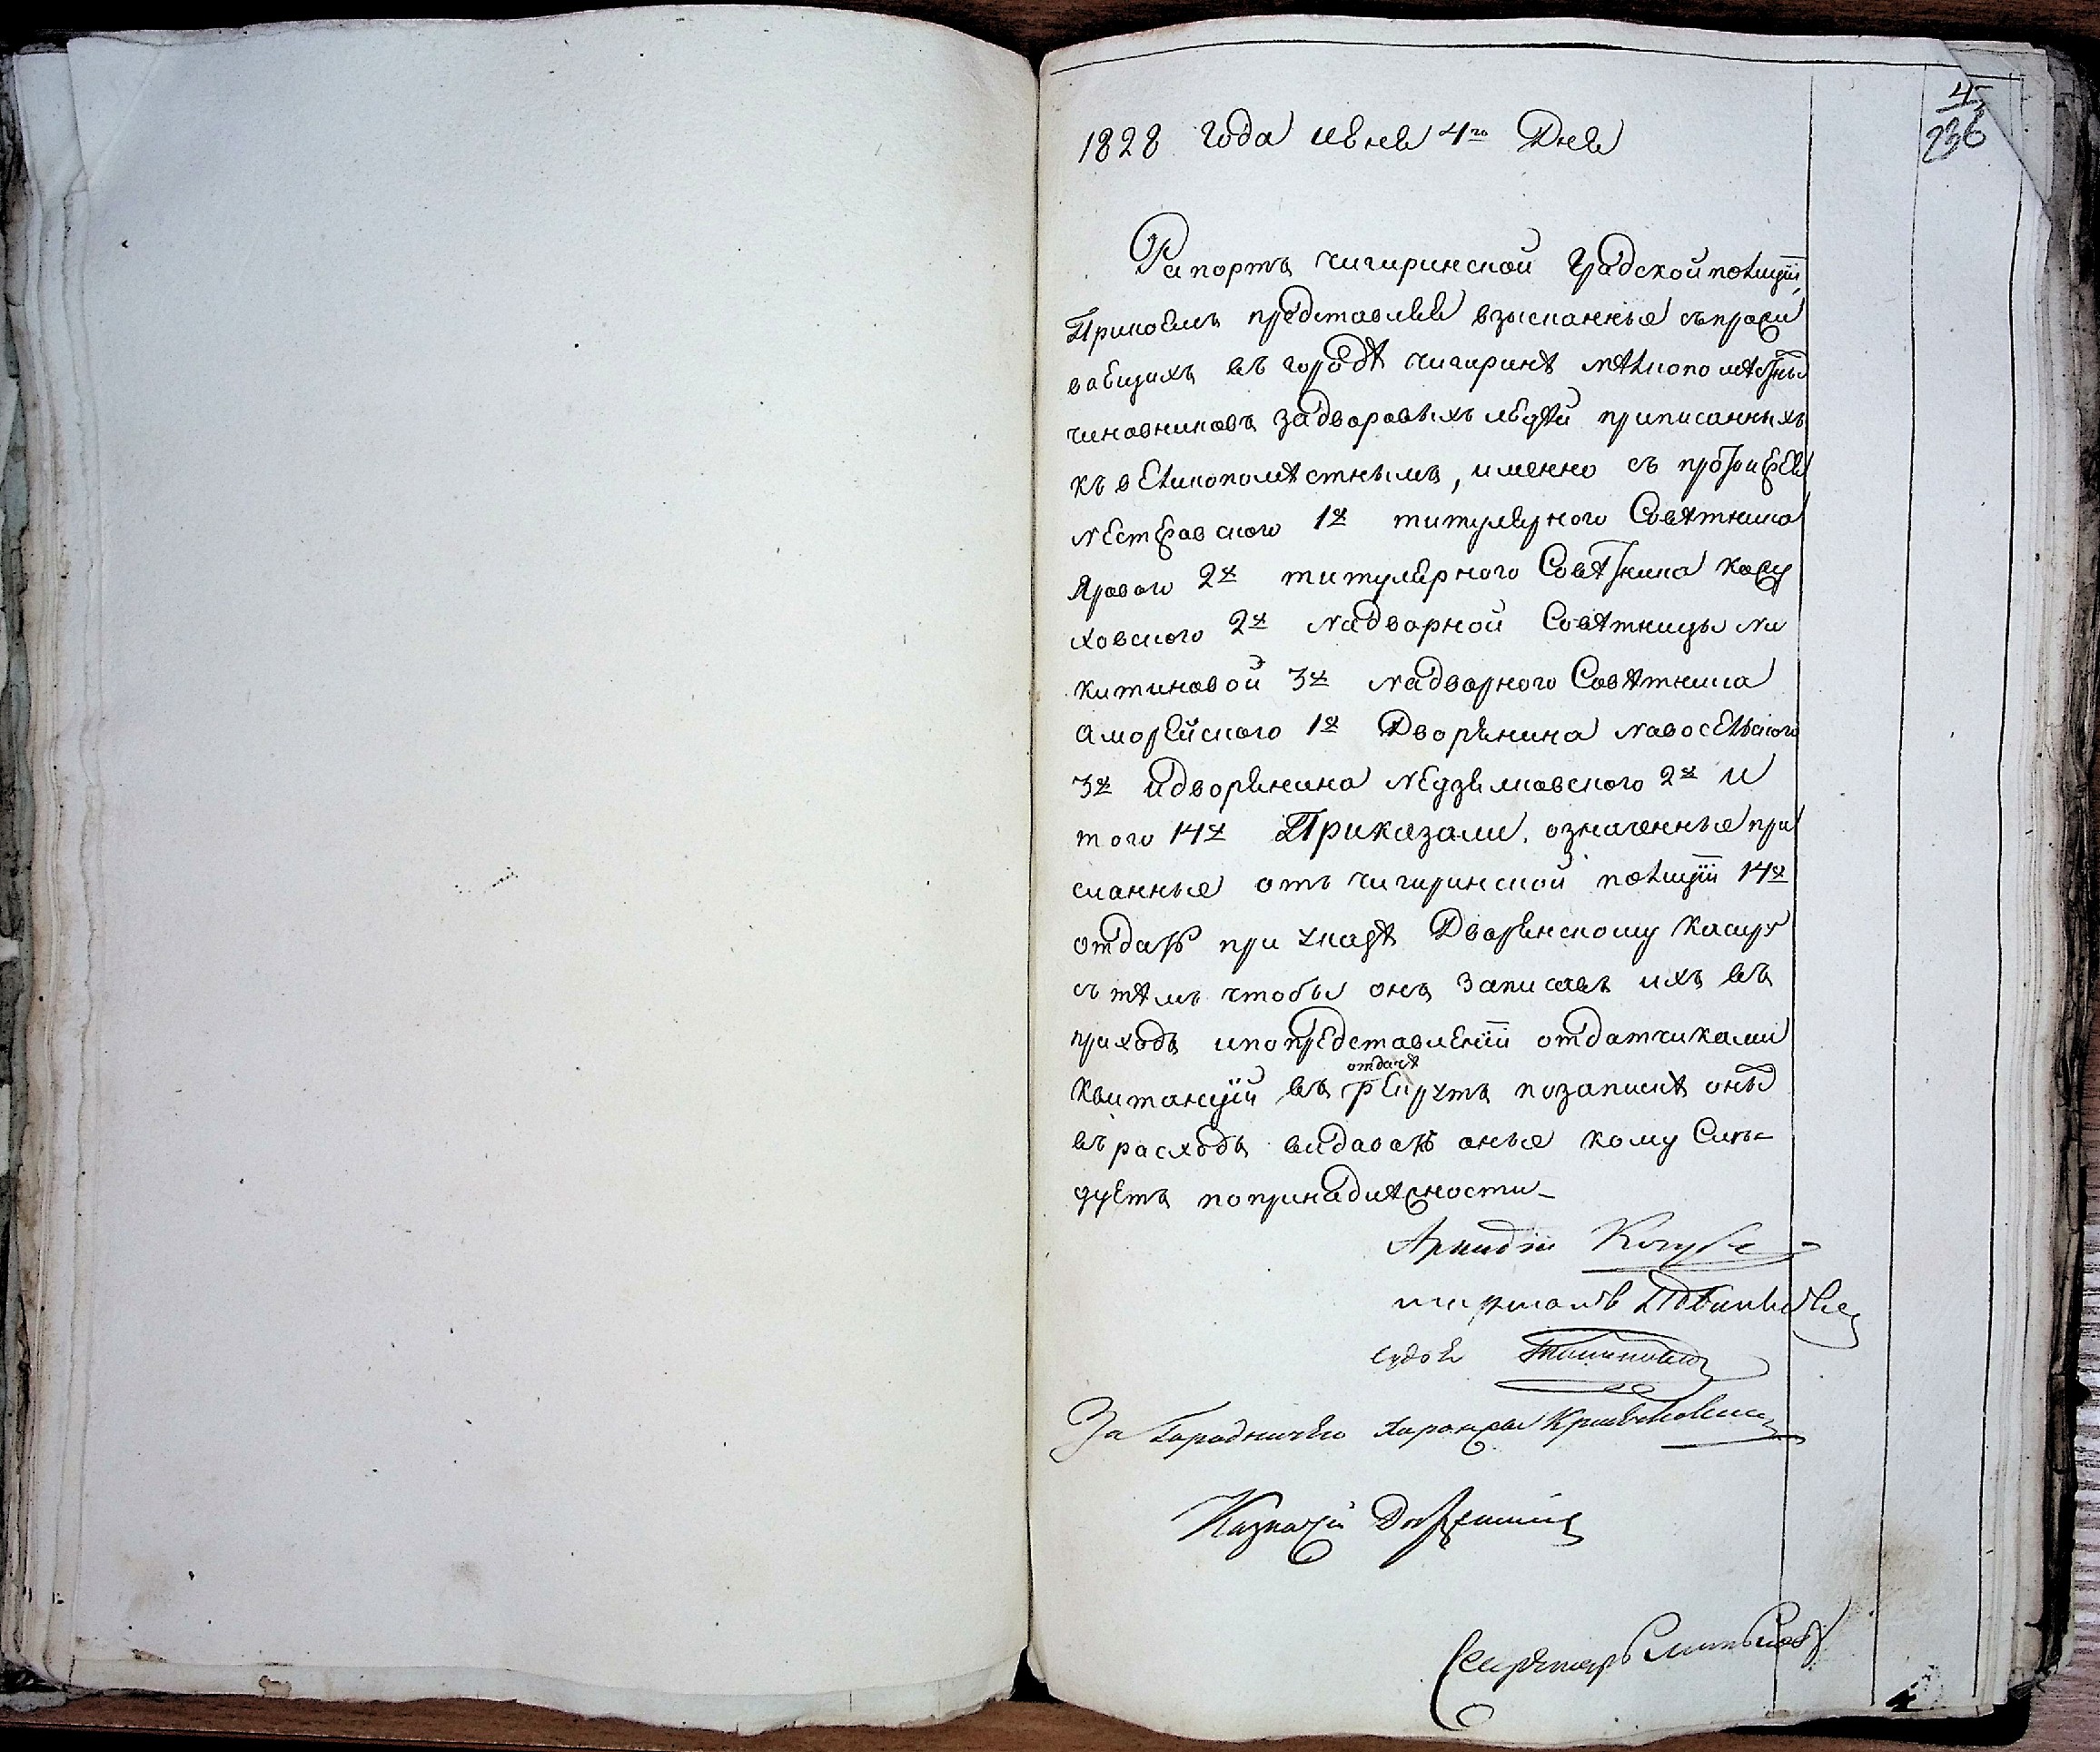 4
236
1828 года июня 4го Дня
Рапортъ чигиринской градской полиціи,
При коемъ представляя взысканные съ прожи
вающихъ въ городѣ чигиринѣ мѣлкопомѣстныхъ
чиновниковъ за дворовыхъ людей приписанныхъ
къ великопомѣстнымъ, именно съ протоиерея
Нестеровского 1 р титулярного Совѣтника
Ярового 2 р титулярного Совѣтника кожу
ховского 2 р Надворной Совѣтницы Ни
китиновой 3 р Надворного Совѣтника
аморейского 1 р Дворянина Новосельского
3 р и дворянина Недзялковского 2 р и
того 14 р Приказали, означенные при
сланные отъ чигиринской полиціи 14 р
отдать при указѣ Дворянскому касиру
съ тѣмъ чтобы онъ записавъ ихъ въ
приходъ и по представленіи отдатчиками
отдачѣ
квитанцій въ рекрутъ по запискѣ оныхъ
въ расходъ выдавать оные кому Слѣ=
дуетъ по принадлѣжности
Аркадій Кочубей
маршалъ
судья
За Городничего
Казначей
Секретарь